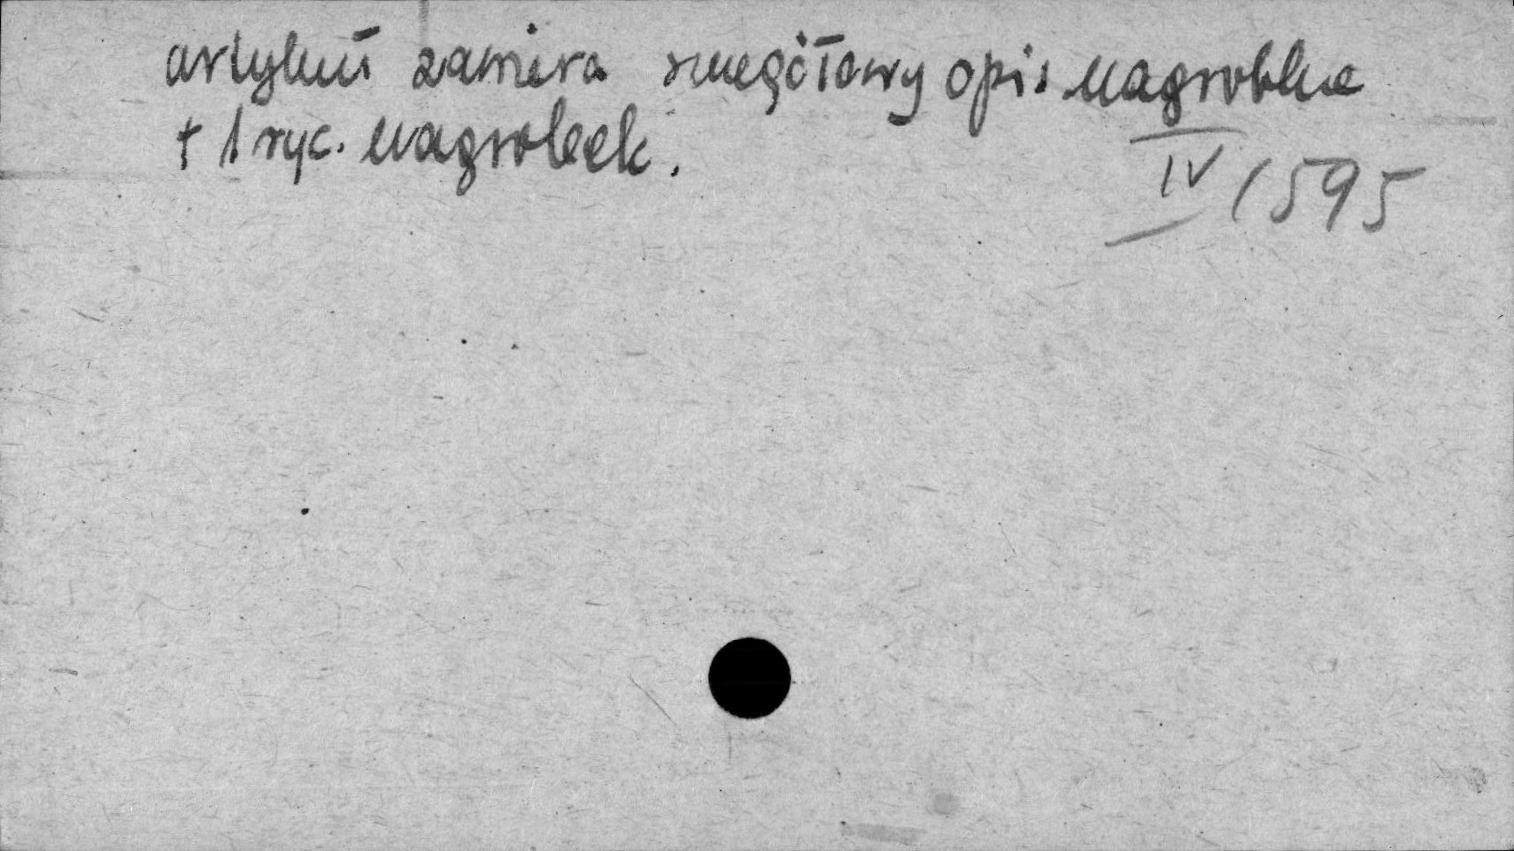 artykuł zawiera szczegółowy opis nagrobka
+ 1 ryc. nagrobek.
IV / 595